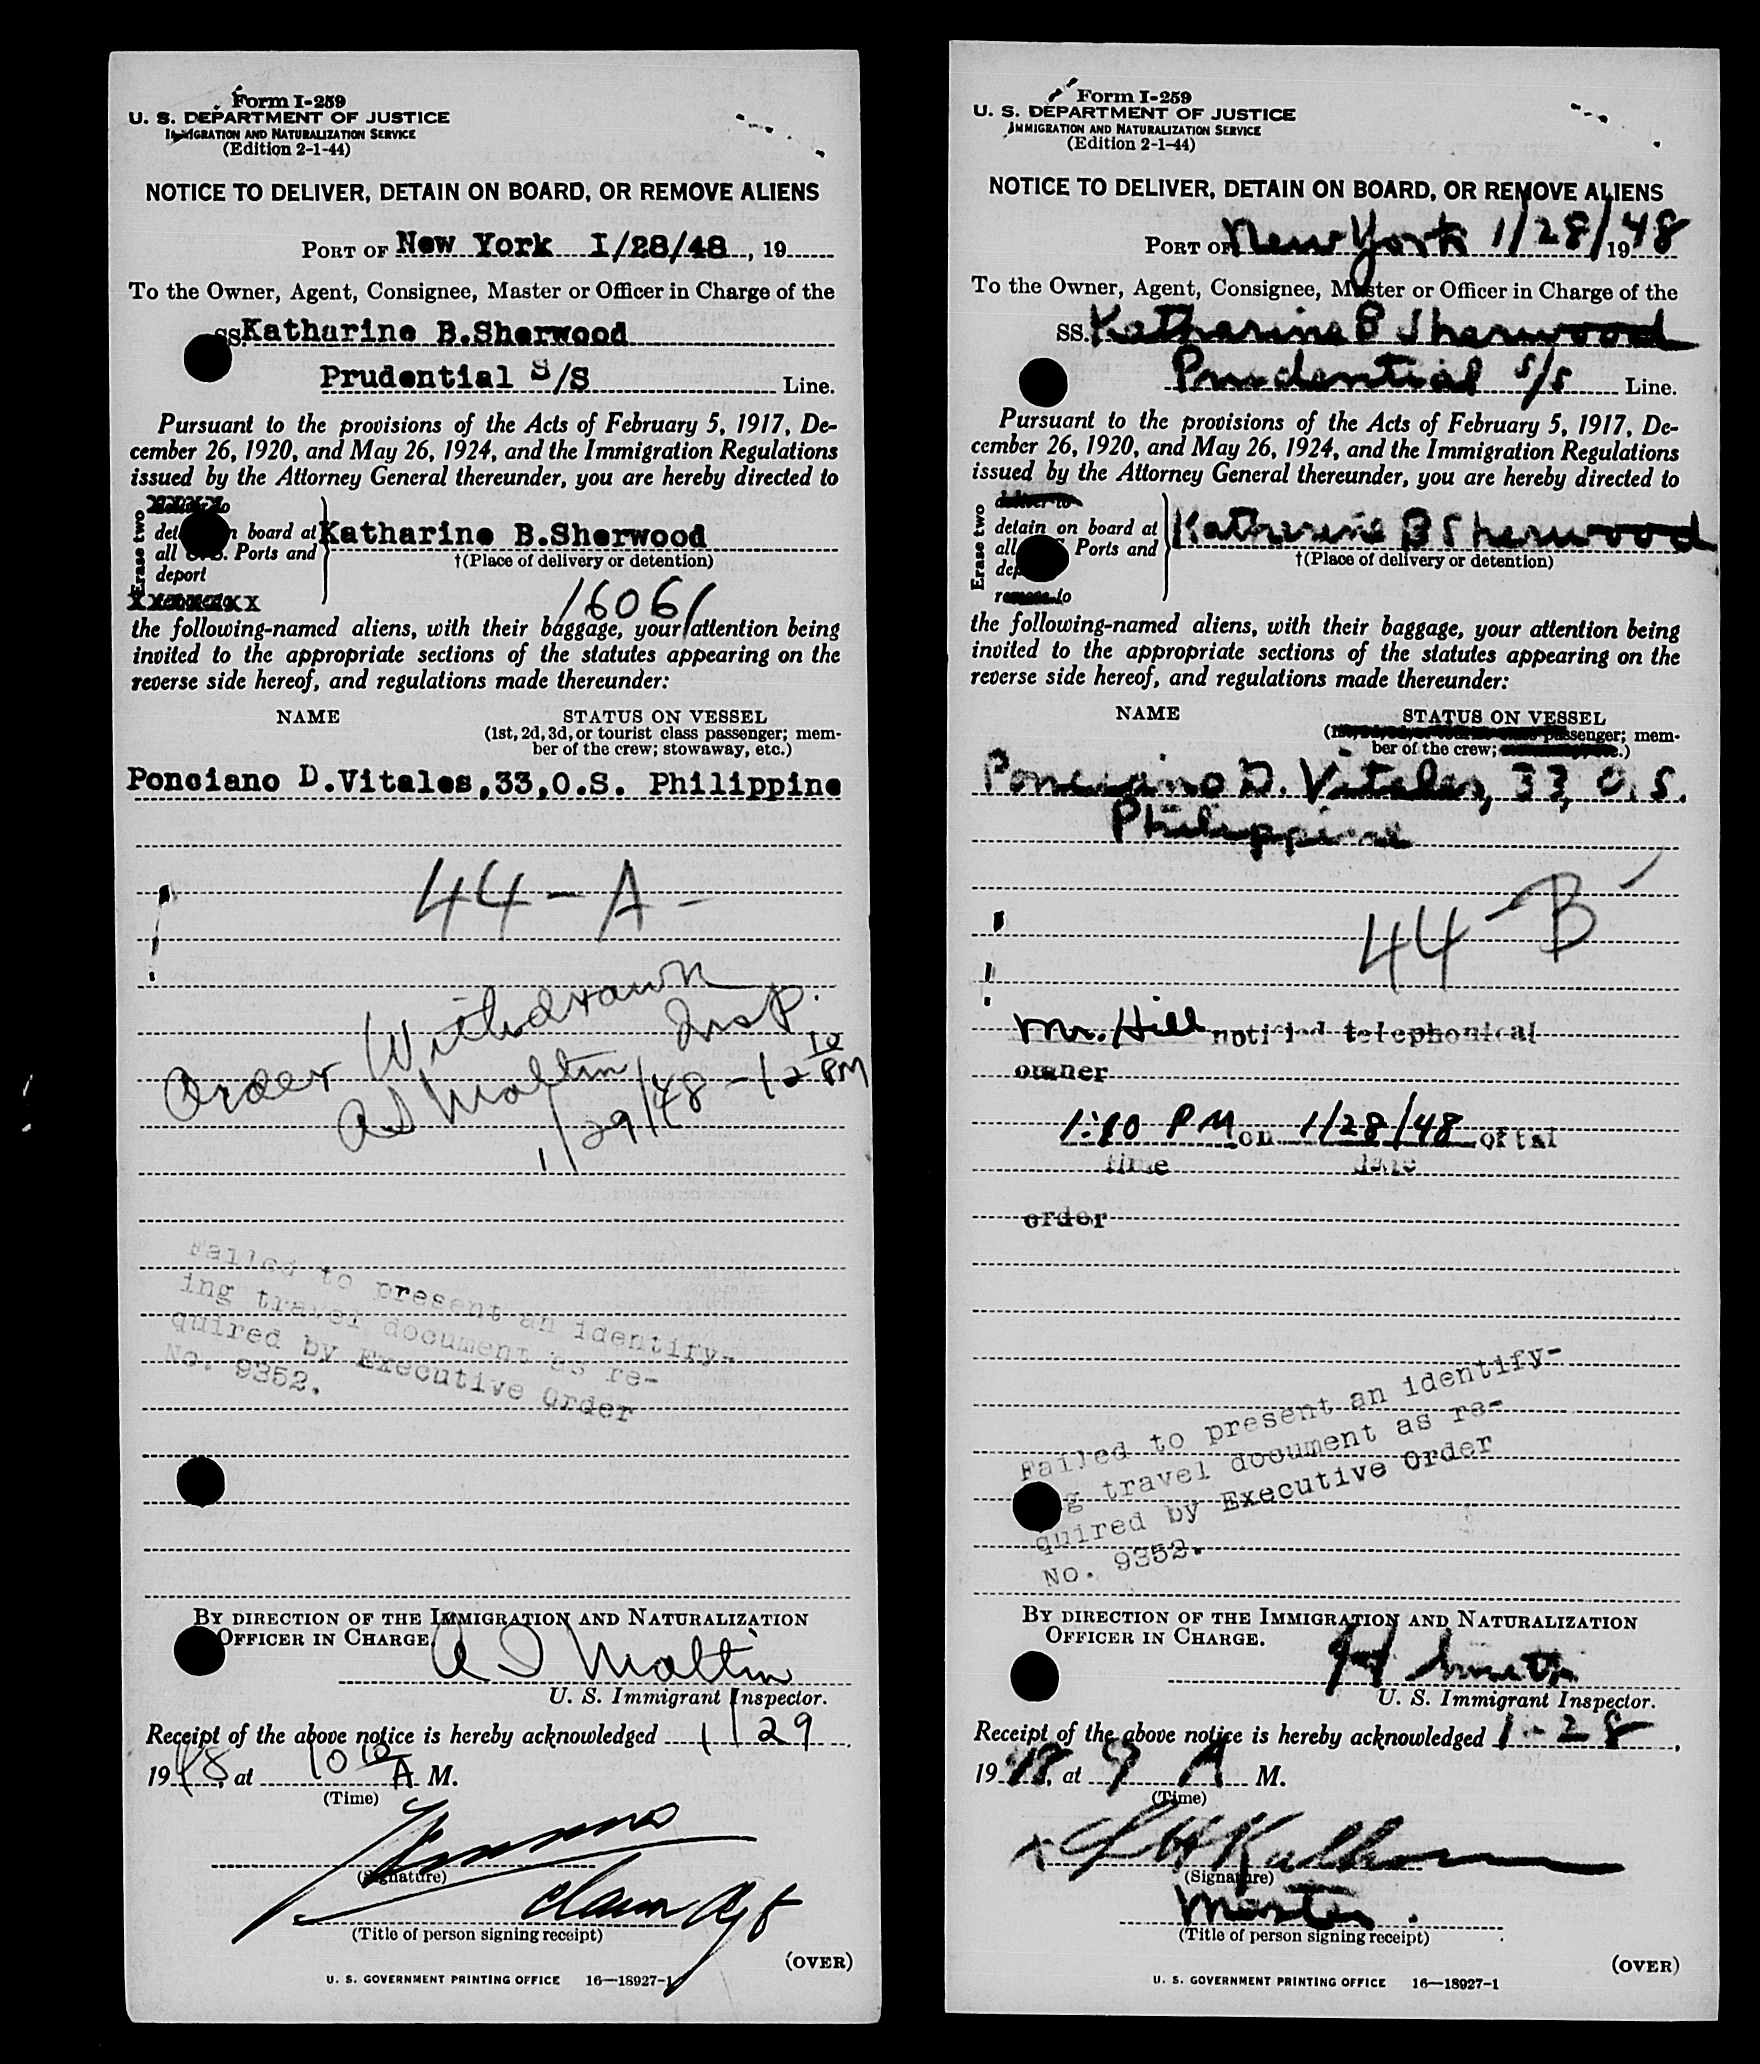 Form I-259
U. S. DEPARTMENT OF JUSTICE
IMMIGRATION AND NATURALIZATION SERVICE
(Edition 2-1-44)
NOTICE TO DELIVER, DETAIN ON BOARD, OR REMOVE ALIENS
PORT OF New York 1/28/48, 19
To the Owner, Agent, Consignee, Master or Officer in Charge of the
SS. Katharine B.Sherwood
Prudential S/S Line.
Pursuant to the provisions of the Acts of February 5, 1917, De-
cember 26, 1920, and May 26, 1924, and the Immigration Regulations
issued by the Attorney General thereunder, you are hereby directed to
Erase two
board at Katharine B.Sherwood
all U.S. Ports and
†(Place of delivery or detention)
deport
16061
the following-named aliens, with their baggage, your attention being
invited to the appropriate sections of the statutes appearing on the
reverse side hereof, and regulations made thereunder:
NAME STATUS ON VESSEL
(1st, 2d, 3d, or tourist class passenger; mem-
ber of the crew; stowaway, etc.)
Ponciano D.Vitales,33,O.S. Philippine
44-A-
Order Withdrawn
A I Maltin Insp.
1/29/48 - 12 10 PM
Failed to present an identify-
ing travel document as re-
quired by Executive Order
No. 9352.
BY DIRECTION OF THE IMMIGRATION AND NATURALIZATION
OFFICER IN CHARGE.
A I Maltin
U. S. Immigrant Inspector.
Receipt of the above notice is hereby acknowledged 1/29
1948, at 10 10 A M.
(Time)
(Signature)
(Title of person signing receipt)
(OVER)
U. S. GOVERNMENT PRINTING OFFICE 16—18927-1
Form I-259
U. S. DEPARTMENT OF JUSTICE
IMMIGRATION AND NATURALIZATION SERVICE
(Edition 2-1-44)
NOTICE TO DELIVER, DETAIN ON BOARD, OR REMOVE ALIENS
PORT OF New York 1/28/ 1948
To the Owner, Agent, Consignee, Master or Officer in Charge of the
SS. Katharine B Sherwood
Prudential S/S Line.
Pursuant to the provisions of the Acts of February 5, 1917, De-
cember 26, 1920, and May 26, 1924, and the Immigration Regulations
issued by the Attorney General thereunder, you are hereby directed to
Erase two
deliver to
detain on board at Katharine B Sherwood
all Ports and
†(Place of delivery or detention)
remove to
the following-named aliens, with their baggage, your attention being
invited to the appropriate sections of the statutes appearing on the
reverse side hereof, and regulations made thereunder:
NAME STATUS ON VESSEL
passenger; mem-
ber of the crew;
Ponciano D. Vitales, 33, O.S.
Philippine
44-B
Mr. Hill notified telephonical
owner
PM on 1/28/48 of
time date
order
Failed to present an identify-
travel document as re-
quired by Executive Order
No. 9352.
BY DIRECTION OF THE IMMIGRATION AND NATURALIZATION
OFFICER IN CHARGE.
U. S. Immigrant Inspector.
Receipt of the above notice is hereby acknowledged 1-28,
1948, at 9 A M.
(Time)
(Signature)
Master.
(Title of person signing receipt)
(OVER)
U. S. GOVERNMENT PRINTING OFFICE 16—18927-1